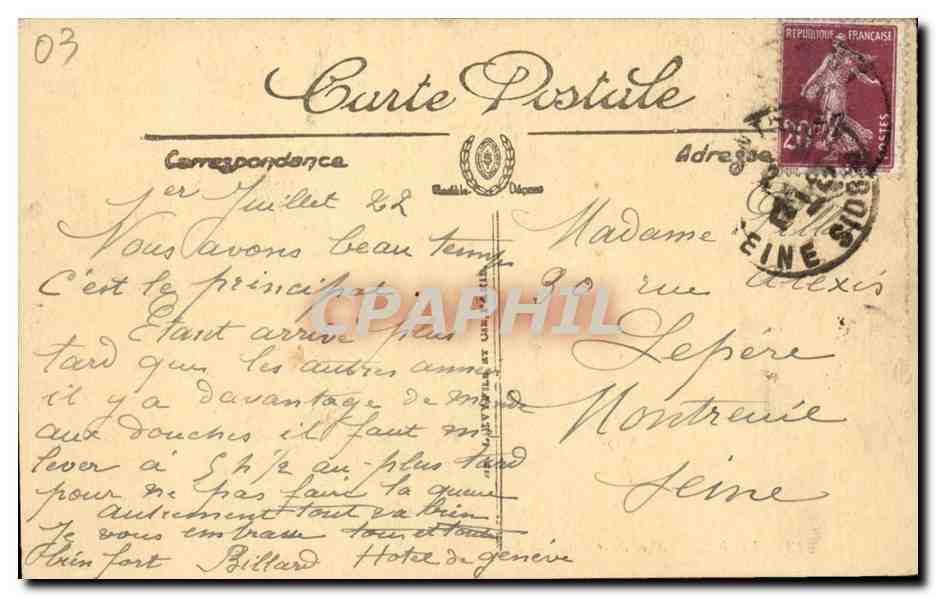 03
Carte Postale
RÉPUBLIQUE FRANÇAISE
POSTES
Correspondance
Adresse
Modèle Déposé
EINE S/BOIS
1er Juillet 22
Nous avons beau temps
C'est le principal
Etant arrivé plus
tard que les autres années
il y a davantage de monde
aux douches il faut me
lever à 5 h 1/2 au plus tard
pour ne pas faire la queue
autrement tout va bien
Je vous embrasse tous et toutes
bien fort Billard Hotel de genève
LEVY FILS ET CIE PARIS
Madame
30 rue Alexis
Lepère
Montreuil
Seine
CPAPHIL